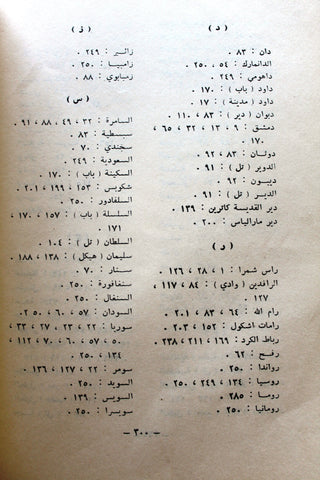 ( د )
دان : ٨٣ .
الدانمارك : ٥٤ ، ٢٥٠ .
داهومي : ٢٤٩ .
داود ( باب ) : ١٧٠ .
داود ( مدينة ) : ١٧ .
ديوان ( دير ) : ٨٣ ، ١١٠ .
دمشق : ٩ ، ١٣ ، ٣٢ ، ٦٥ ،
١٧٠ .
دوثان : ٨٣ ، ٩٢ .
الدوير ( تل ) : ٩١ .
ديبون : ٩٢ .
الدير ( تل ) : ٩١ .
دير القديسة كاترين : ١٣٩ .
دير مارالياس : ٢٠٠ .
( ر )
راس شمرا : ١ ، ٢٨ ، ١٢٦ .
الرافدين ( وادي ) : ٨٤ ، ١١٧ ،
١٢٧ .
رام الله : ٦٤ ، ٨٣ ، ٢٠١ .
رامات اشكول : ١٥٢ ، ٢٠٣ .
رباط الكرد : ١٦٦ ، ٢١١ ، ٢٣٨ .
رفح : ٦٢ .
رواندا : ٢٥٠ .
روسيا : ١٣٤ ، ٢٤٩ ، ٢٥٠ .
روما : ٢٨٥ .
رومانيا : ٢٥٠ .
( ز )
زائير : ٢٤٩ .
زامبيا : ٢٥٠ .
زمبابوي : ٨٨ .
( س )
السامرة : ٣٢ ، ٤٩ ، ٨٨ ، ٩١ .
سبسطية : ٨٣ .
سجندي : ٧٠ .
السعودية : ٢٤٩ .
السكينة ( باب ) : ١٧٠ .
شكوبس : ١٥٣ ، ١٩٩ ، ٢٠١ .
السلفادور : ٢٥٠ .
السلسلة ( باب ) : ١٥٧ ، ١٧٠ ،
١٧١
السلطان ( تل ) : ١٠٤ .
سليمان ( هيكل ) : ١٣٨ ، ١٨٨ .
سنار : ٧٠ .
سنغافورة : ٢٥٠ .
السنغال : ٢٥٠ .
السودان : ٥٧ ، ٦٠ ، ٢٥٠ .
سوريا : ٢٢ ، ٢٣ ، ٢٧ ، ٣٣ ،
٥٠ ، ٥٧ ، ٦٠ ، ٧٠ ، ١١٢ ،
١٣٤ ، ٢٥٠ .
سومر : ٢٢ ، ١٢٧ ، ١٣٨ .
السويد : ٢٥٠ .
السويس : ١٣٩ .
سويسرا : ٢٥٠ .
— ٣٠٠ —